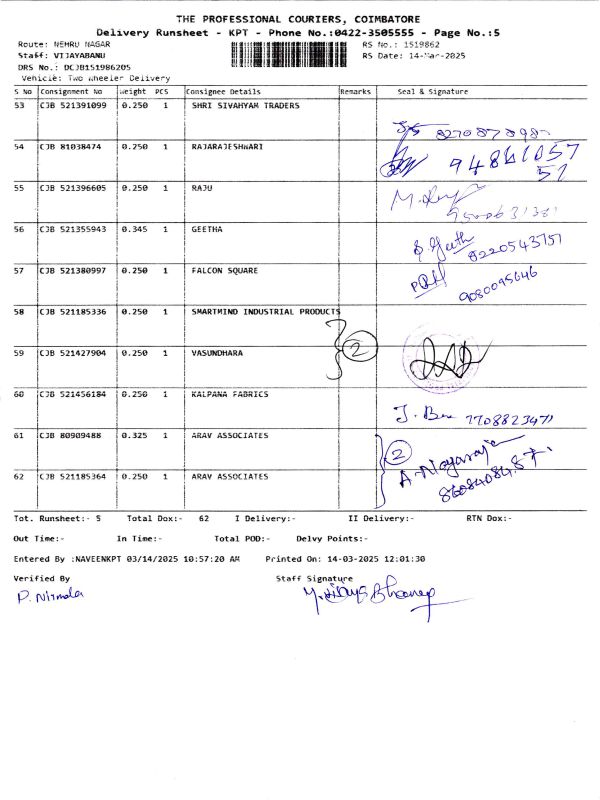 THE PROFESSIONAL COURIERS, COIMBATORE
Delivery Runsheet - KPT - Phone No.:0422-3505555 - Page No.:5
Route: NEHRU NAGAR RS No.: 1519862
Staff: VIJAYABANU RS Date: 14-Mar-2025
DRS No.: DCJB151986205
Vehicle: Two Wheeler Delivery
S No Consignment No Weight PCS Consignee Details Remarks Seal & Signature
53 CJB 521391099 0.250 1 SHRI SIVAHYAM TRADERS
54 CJB 81038474 0.250 1 RAJARAJESHWARI
55 CJB 521396605 0.250 1 RAJU
56 CJB 521355943 0.345 1 GEETHA
8220543757
57 CJB 521380997 0.250 1 FALCON SQUARE
9080095646
58 CJB 521185336 0.250 1 SMARTMIND INDUSTRIAL PRODUCTS
2
59 CJB 521427904 0.250 1 VASUNDHARA
60 CJB 521456184 0.250 1 KALPANA FABRICS
7708823471
61 CJB 80909488 0.325 1 ARAV ASSOCIATES
2
62 CJB 521185364 0.250 1 ARAV ASSOCIATES
Tot. Runsheet:- 5 Total Dox:- 62 I Delivery:- II Delivery:- RTN Dox:-
Out Time:- In Time:- Total POD:- Delvy Points:-
Entered By :NAVEENKPT 03/14/2025 10:57:20 AM Printed On: 14-03-2025 12:01:30
Verified By Staff Signature
P. Nirmala